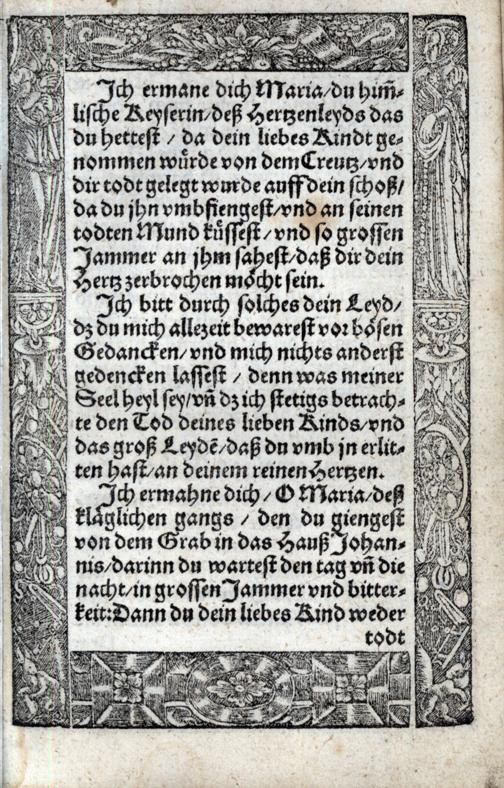 Ich ermane dich Maria/du him̃-
lische Keyserin/deß Hertzenleyds das
du hettest / da dein liebes Kindt ge-
nommen würde von dem Creutz/vnd
dir todt gelegt wurde auff dein schoß/
da du jhn vmbfiengest/vnd an seinen
todten Mund küssest/vnd so grossen
Jammer an jhm sahest/daß dir dein
Hertz zerbrochen möcht sein.
Ich bitt durch solches dein Leyd/
dz du mich allezeit bewarest vor bösen
Gedancken/vnd mich nichts anderst
gedencken lassest / denn was meiner
Seel heyl sey/vñ dz ich stetigs betrach-
te den Tod deines lieben Kinds/vnd
das groß Leydẽ/daß du vmb jn erlit-
ten hast/an deinem reinen Hertzen.
Ich ermahne dich/O Maria/deß
kläglichen gangs / den du giengest
von dem Grab in das Hauß Johan-
nis/darinn du wartest den tag vñ die
nacht/in grossen Jammer vnd bitter-
keit:Dann du dein liebes Kind weder
todt